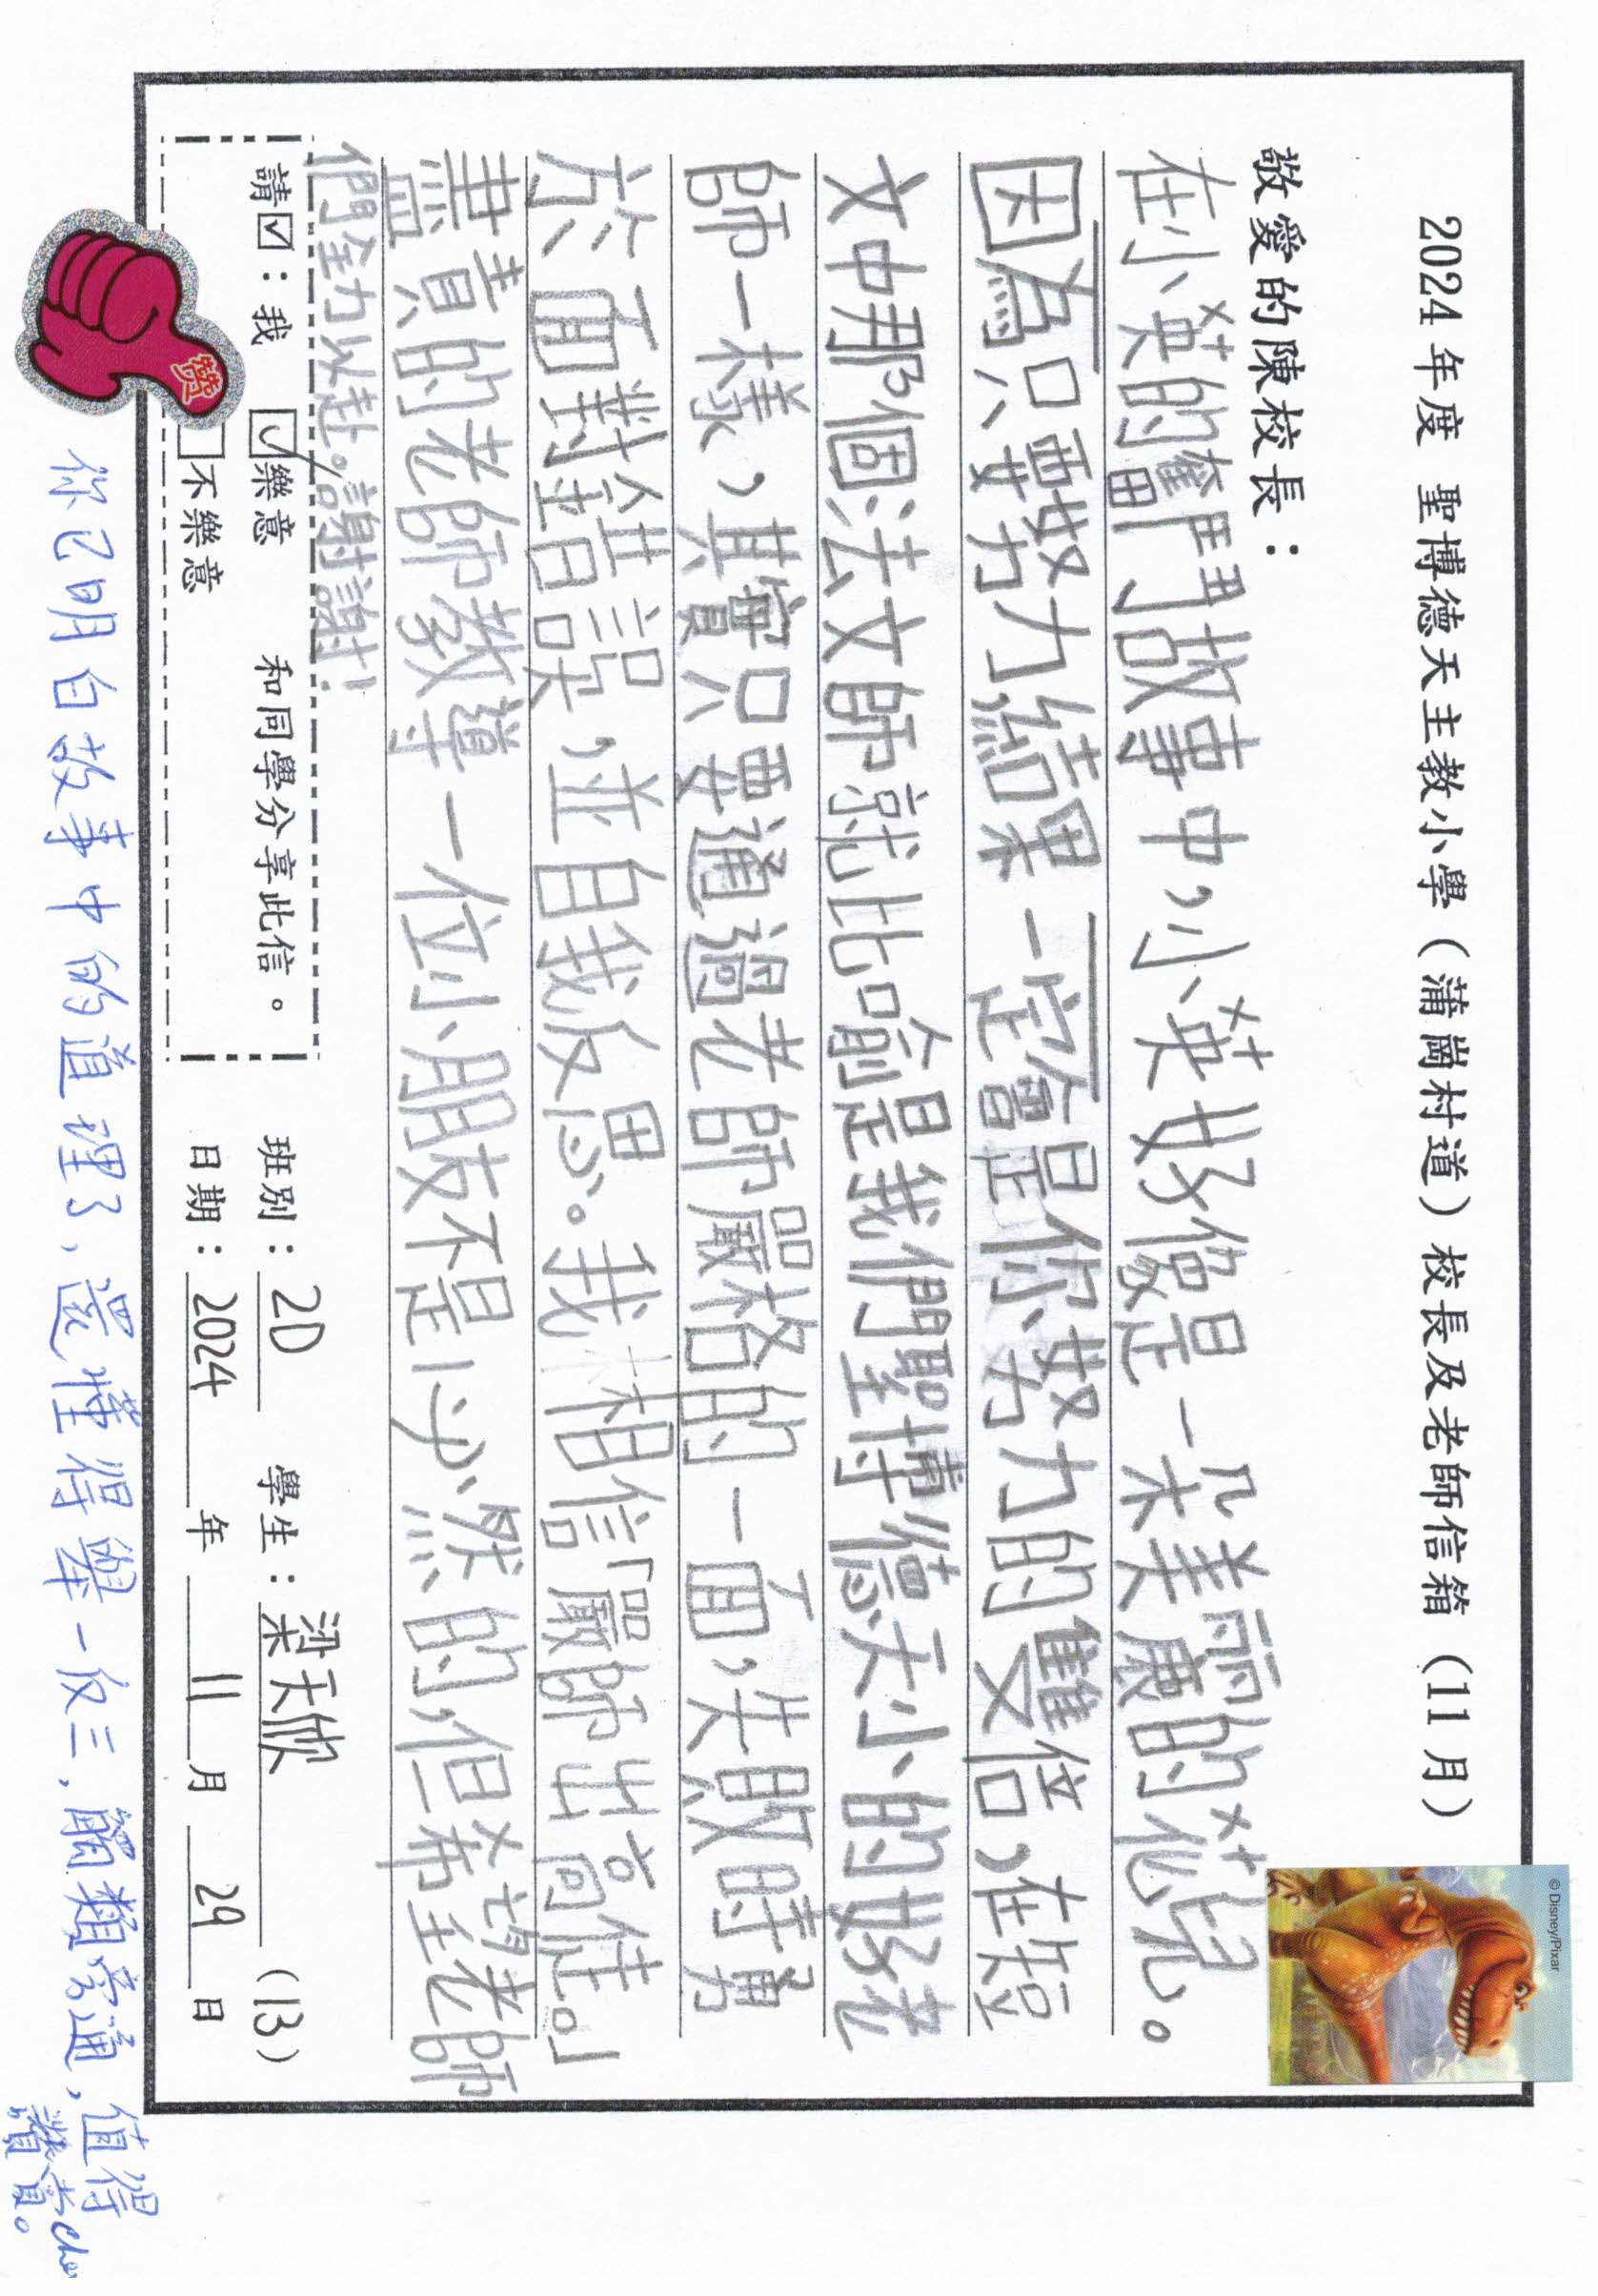 2024年度 聖博德天主教小學（蒲崗村道）校長及老師信箱（11月）
© Disney/Pixar
敬愛的陳校長：
在小英的奮鬥故事中，小英好像是一朵美麗的花兒。
因為只要努力，結果一定會是你努力的雙倍，在短
文中那個法文師就比喻是我們聖博德天小的好老
師一樣，其實只要通過老師嚴格的一面，失敗時勇
於面對錯誤，並自我反思。我相信「嚴師出高徒。」
盡責的老師教導一位小朋友不是必然的，但希望老師
們全力以赴。謝謝！
請☑：我 ☑樂意 和同學分享此信。
□不樂意
班別：2D 學生：梁天欣 (13)
日期：2024年11月29日
赞
你已明白故事中的道理了，還懂得舉一反三，觸類旁通，值得
讚賞。